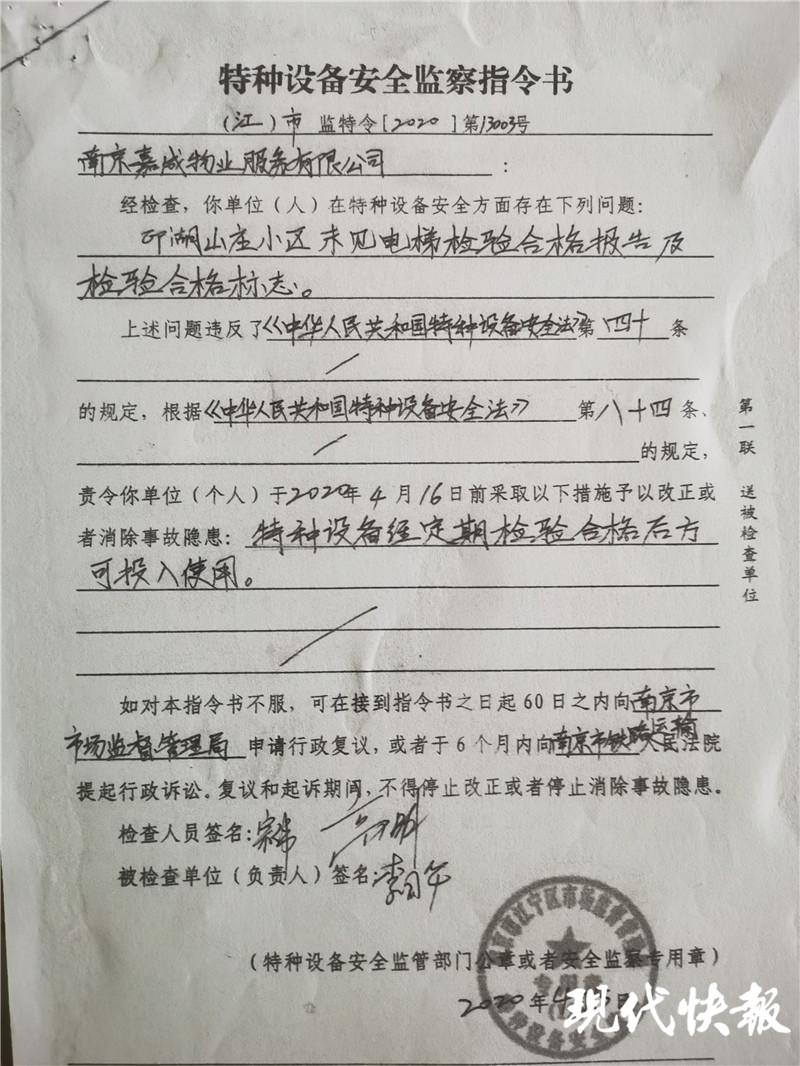 特种设备安全监察指令书
（江）市 监特令[2020]第13003号
南京嘉成物业服务有限公司：
经检查，你单位（人）在特种设备安全方面存在下列问题：
印湖山庄小区未见电梯检验合格报告及
检验合格标志。
上述问题违反了《中华人民共和国特种设备安全法》第四十条
的规定，根据《中华人民共和国特种设备安全法》第八十四条、
的规定，
责令你单位（个人）于2020年4月16日前采取以下措施予以改正或
者消除事故隐患：特种设备经定期检验合格后方
可投入使用。
如对本指令书不服，可在接到指令书之日起60日之内向南京市
市场监督管理局 申请行政复议，或者于6个月内向南京市铁路运输人民法院
提起行政诉讼。复议和起诉期间，不得停止改正或者停止消除事故隐患。
检查人员签名：
被检查单位（负责人）签名：
（特种设备安全监管部门公章或者安全监察专用章）
2020年4月 日
第一联 送被检查单位
南京市江宁区市场监督管理局
专用章
特种设备安全
现代快报